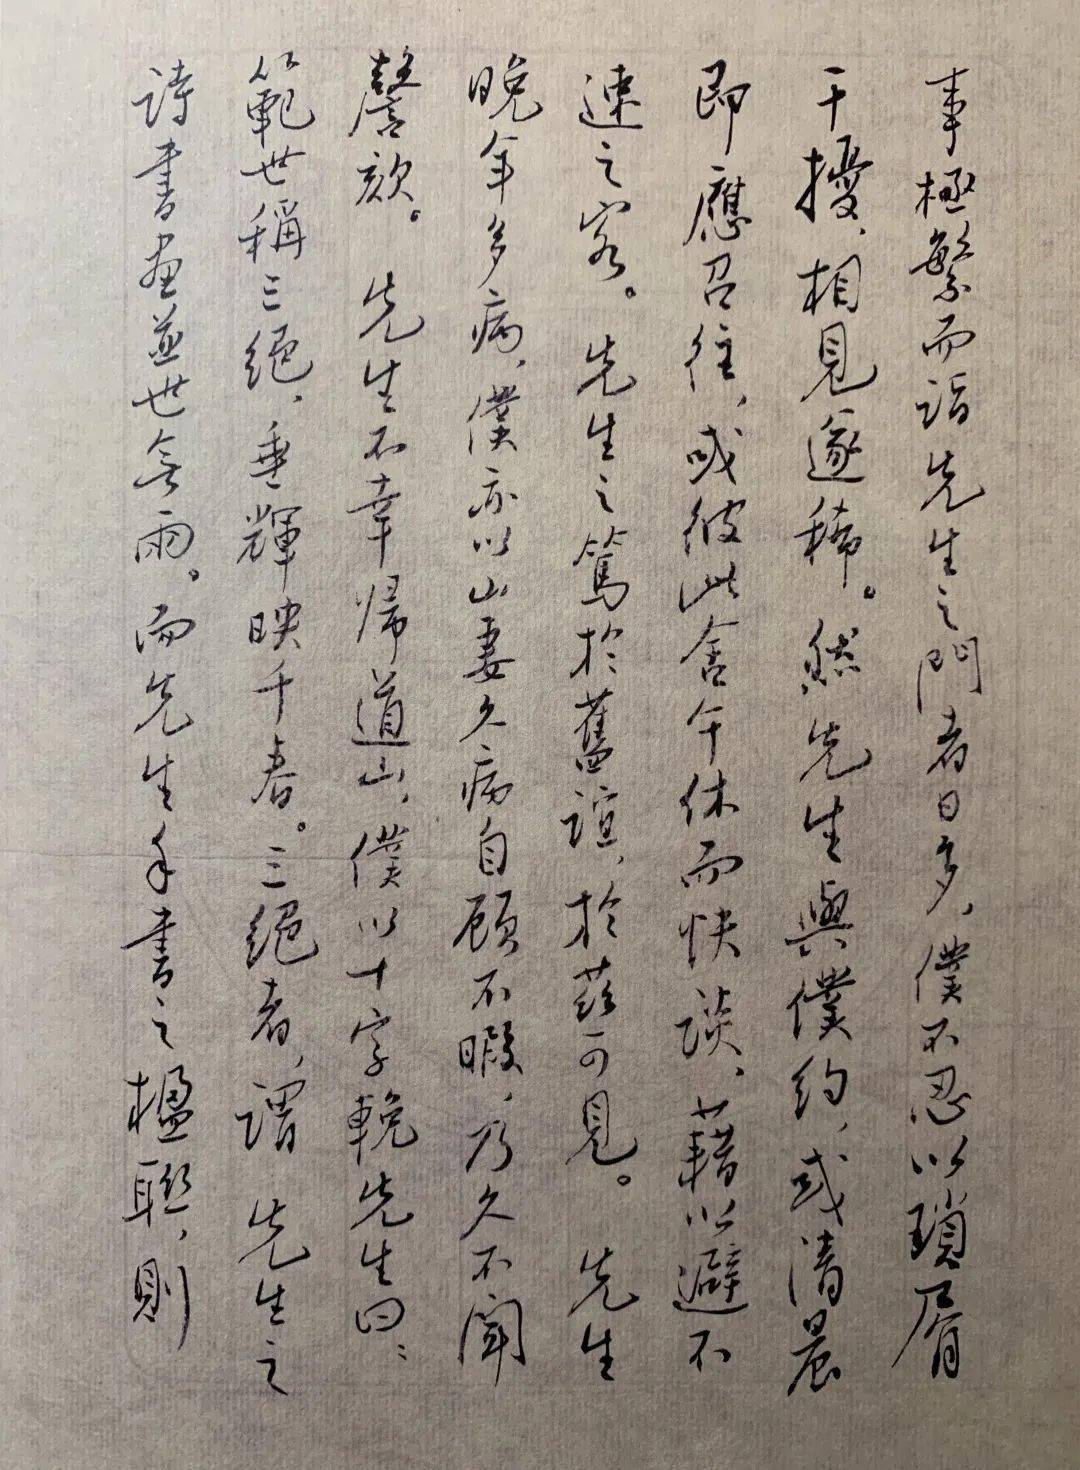 事極繁而詣先生之門者日多，僕不忍以瑣屑
干擾，相見遂稀。然先生與僕約，或清晨
即應召往，或彼此舍午休而快談，藉以避不
速之客。　先生之篤於舊誼，於茲可見。　先生
晚年多病，僕亦以山妻久病自顧不暇，乃久不聞
謦欬。　先生不幸歸道山，僕以十字輓先生曰：
範世稱三絕，垂輝映千春。三絕者，謂　先生之
詩書畫並世無兩。而先生手書之楹聯，則